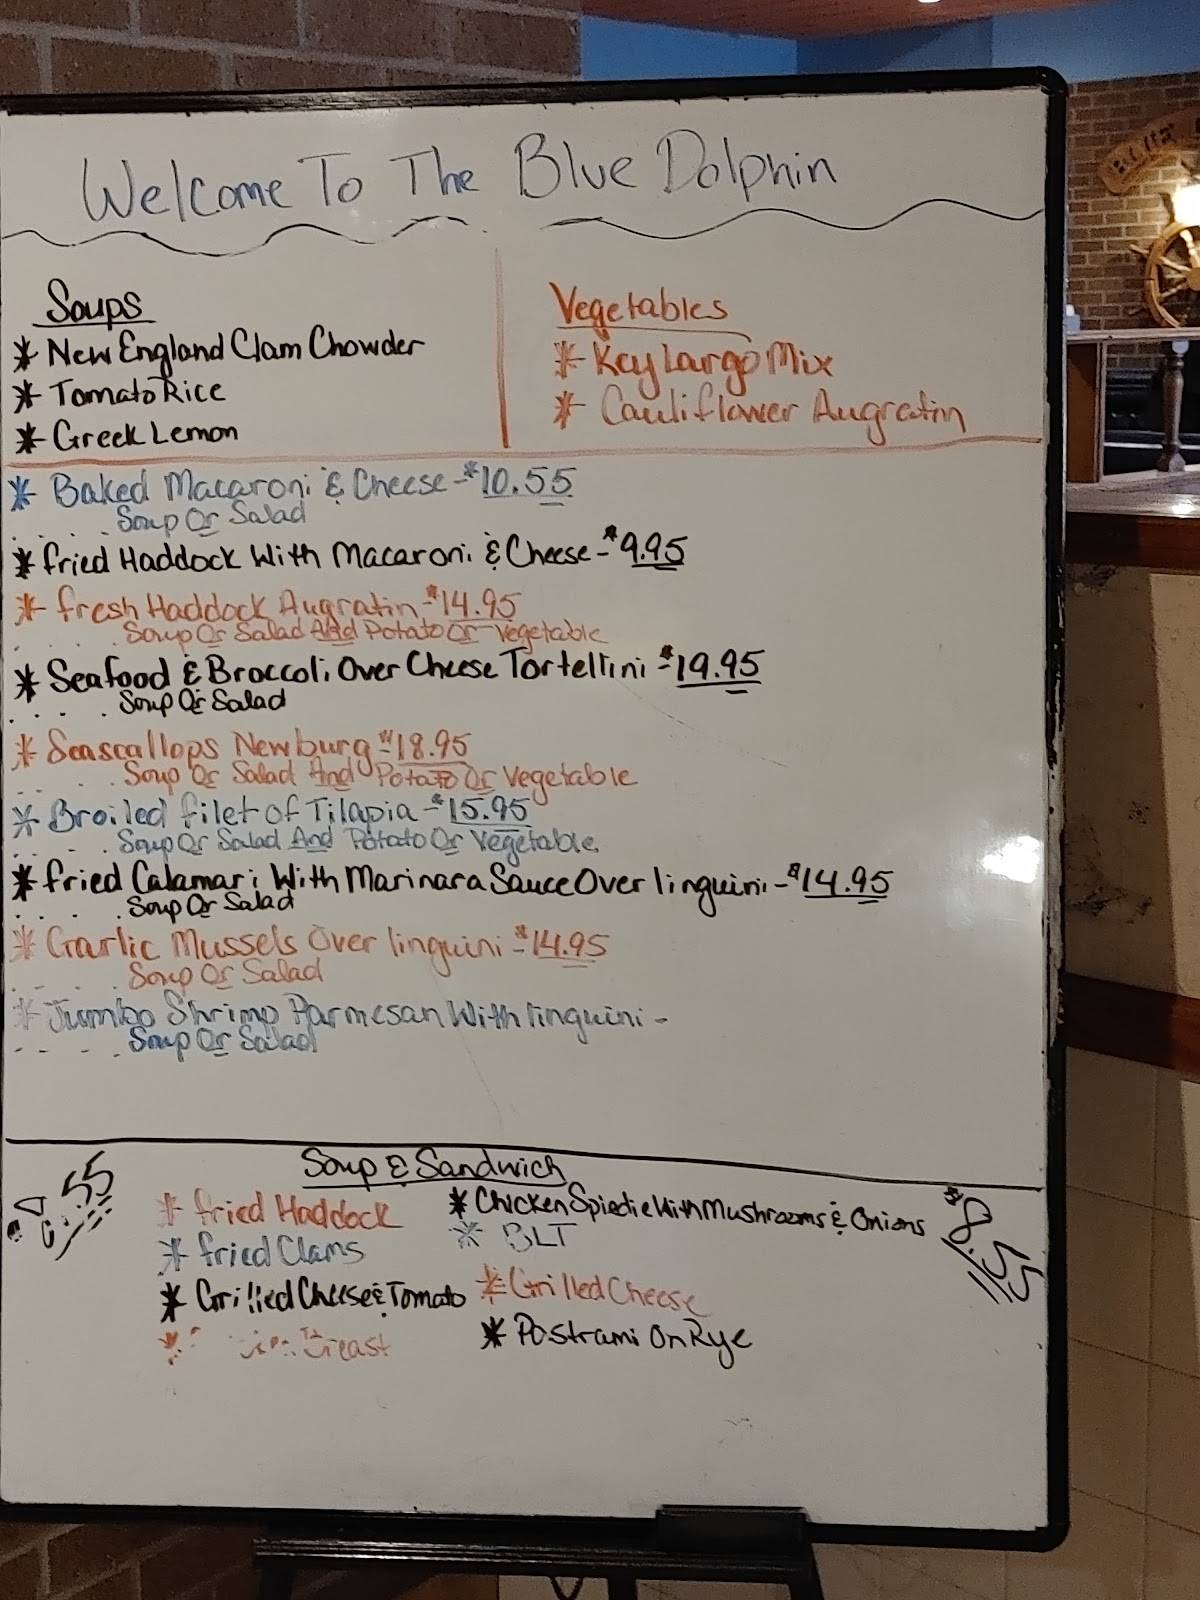 Welcome To The Blue Dolphin
Soups
* New England Clam Chowder
* Tomato Rice
* Greek Lemon
Vegetables
* Key Largo Mix
* Cauliflower Augratin
* Baked Macaroni & Cheese - $10.55
Soup Or Salad
* Fried Haddock With Macaroni & Cheese - $9.95
* Fresh Haddock Augratin - $14.95
Soup Or Salad And Potato Or Vegetable
* Seafood & Broccoli Over Cheese Tortellini - $19.95
Soup Or Salad
* Seascallops Newburg - $18.95
Soup Or Salad And Potato Or Vegetable
* Broiled Filet of Tilapia - $15.95
Soup Or Salad And Potato Or Vegetable
* Fried Calamari With Marinara Sauce Over linguini - $14.95
Soup Or Salad
* Garlic Mussels Over linguini - $14.95
Soup Or Salad
* Jumbo Shrimp Parmesan With linguini -
Soup Or Salad
Soup & Sandwich
.55
$8.55
* Fried Haddock
* Fried Clams
* Grilled Cheese & Tomato
Breast
* Chicken Spiedie With Mushrooms & Onions
* BLT
* Grilled Cheese
* Pastrami On Rye